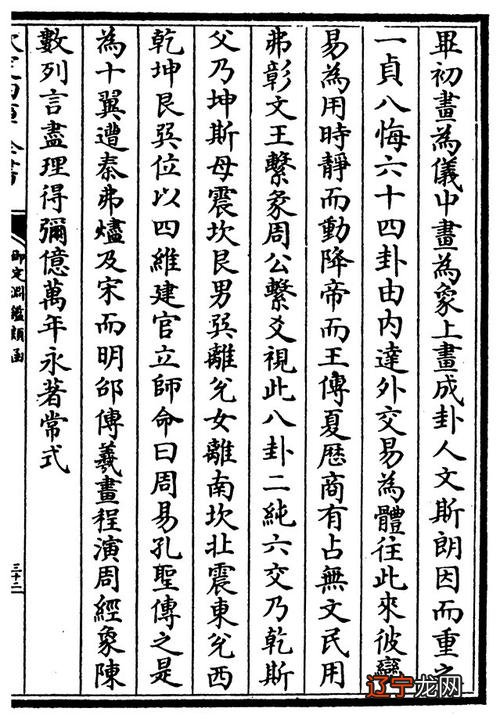 畢初畫為儀中畫為象上畫成卦人文斯朗因而重之
一貞八悔六十四卦由内達外交易為體往此來彼變
易為用時靜而動降帝而王傳夏歴商有占無文民用
弗彰文王繫彖周公繫爻視此八卦二純六交乃乾斯
父乃坤斯母震坎艮男巽離兊女離南坎北震東兊西
乾坤艮巽位以四維建官立師命曰周易孔聖傳之是
為十翼遭秦弗燼及宋而明邵傳羲畫程演周經象陳
數列言盡理得彌億萬年永著常式
御定淵鑑類函
三十二
辽宁龙网